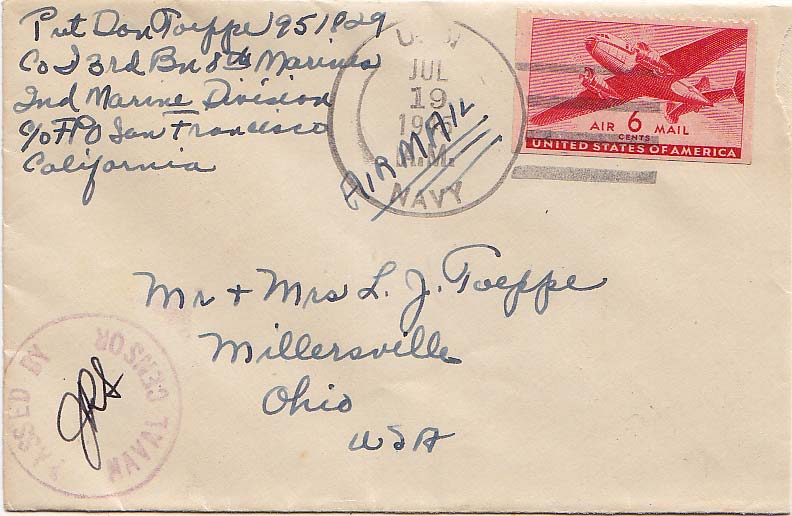 Pvt Don Toeppe 951829
Co I 3rd Bn 8th Marines
2nd Marine Division
c/o FPO San Francisco
California
JUL
19
A.M.
NAVY
AIR MAIL
AIR 6 MAIL
CENTS
UNITED STATES OF AMERICA
Mr + Mrs L. J. Toeppe
Millersville
Ohio
USA
PASSED BY
NAVAL CENSOR
JRS